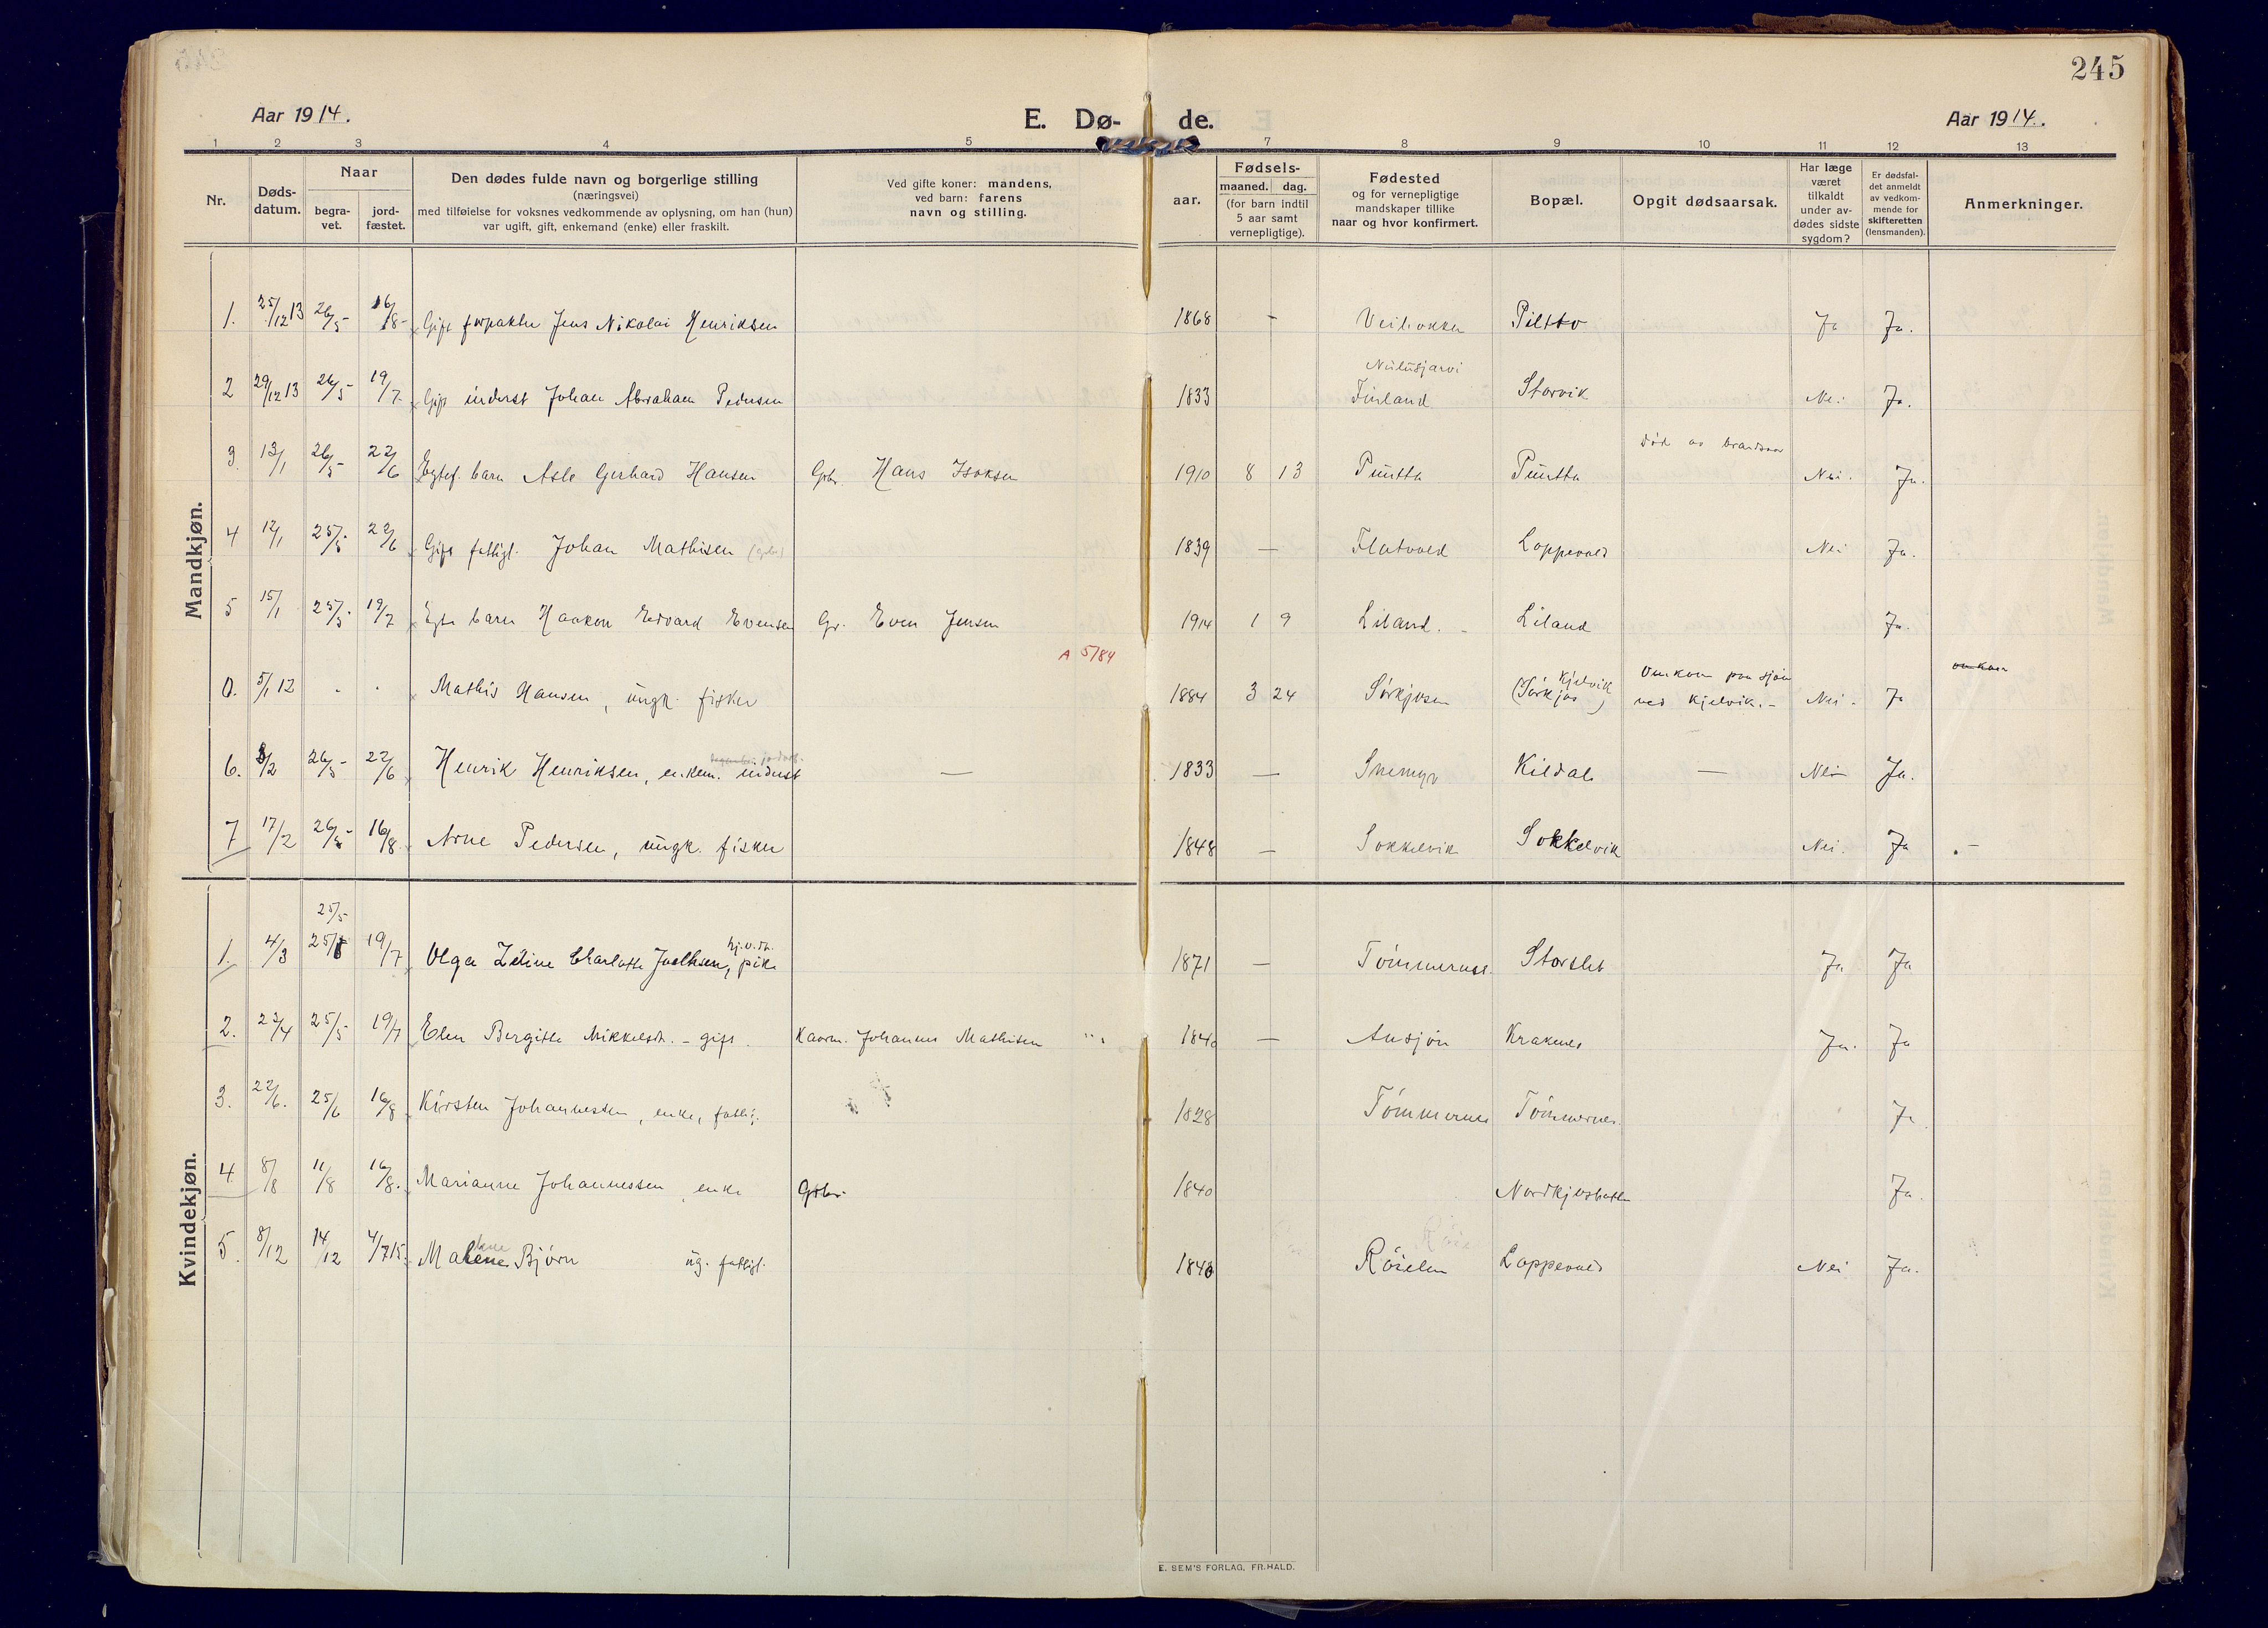 245
Aar 1914.
E. Dø- de.
Aar 1914.
1 2 3 4 5 7 8 9 10 11 12 13
Nr.
Døds-
datum.
Naar
begra-
vet.
jord-
fæstet.
Den dødes fulde navn og borgerlige stilling
(næringsvei)
med tilføielse for voksnes vedkommende av oplysning, om han (hun)
var ugift, gift, enkemand (enke) eller fraskilt.
Ved gifte koner: mandens,
ved barn: farens
navn og stilling.
aar.
Fødsels-
maaned. dag.
(for barn indtil
5 aar samt
vernepligtige).
Fødested
og for vernepligtige
mandskaper tillike
naar og hvor konfirmert.
Bopæl.
Opgit dødsaarsak.
Har læge
været
tilkaldt
under av-
dødes sidste
sygdom?
Er dødsfal-
det anmeldt
av vedkom-
mende for
skifteretten
(lensmanden).
Anmerkninger.
Mandkjøn.
1. 25/12 13 26/5- 16/8- Gift forpakter Jens Nikolai Henriksen 1868 - Piltto Ja Ja.
2 29/12 13 26/5- 19/7. Gift inderst Johan Abraham Pedersen 1833 Finland Storvik Nei Ja.
3. 13/1 26/5- 22/6 Egtef. barn Asle Gerhard Hansen Gbr. Hans Isaksen 1910 8 13 Puntta Puntta død av brandsaar Nei. Ja.
4 12/1 25/5. 22/6 Gift fattigl. Johan Mathisen (gbr) 1839 — Flatvold Loppevold Nei Ja.
5 15/1 25/5. 19/7 Egte barn Haakon Edvard Evensen Gr. Even Jensen 1914 1 9 Liland. - Liland Ja.
A 5/84
0. 5/1 12 . . Mathis Hansen, ungk. fisker 1884 3 24 Sørkjosen (Sørkjos) Kjelvik Omkom paa sjøen
ved Kjelvik.- Nei- Ja omkom
6. 3/2 26/5- 22/6 Henrik Henriksen, enkem. inderst — 1833 — Snemyr Kildal — Nei Ja.
7 17/2 26/5- 16/8. Arne Pedersen, ungk. fisker 1848 — Sokkelvik Sokkelvik Nei. Ja .-
Kvindekjøn.
25/5
1. 4/3 25/5 19/7 Olga Zeline Charlotte Joelhsen, hj.v. dt. pike 1871 — Tømmernes. Storslet Ja Ja
2. 23/4 25/5 19/7 Elen Bergitte Mikkelsdt. - gift. Kaarm. Johannes Mathisen 1840 — Ansjøn Krakenes Ja. Ja
3. 22/6. 25/6 16/8 Kirsten Johannessen, enke, fattig. 1828 Tømmernes Tømmernes. Ja
4. 8/8 11/8 16/8. Marianne Johannessen, enke Gbr. 1840 Nordkjosbotten Ja.
5. 8/12 14/12 4/7 15. Malene Bjørn ug. fattigl. 1840 Røielen Loppevold Nei Ja.
E. SEM'S FORLAG, FR.HALD.